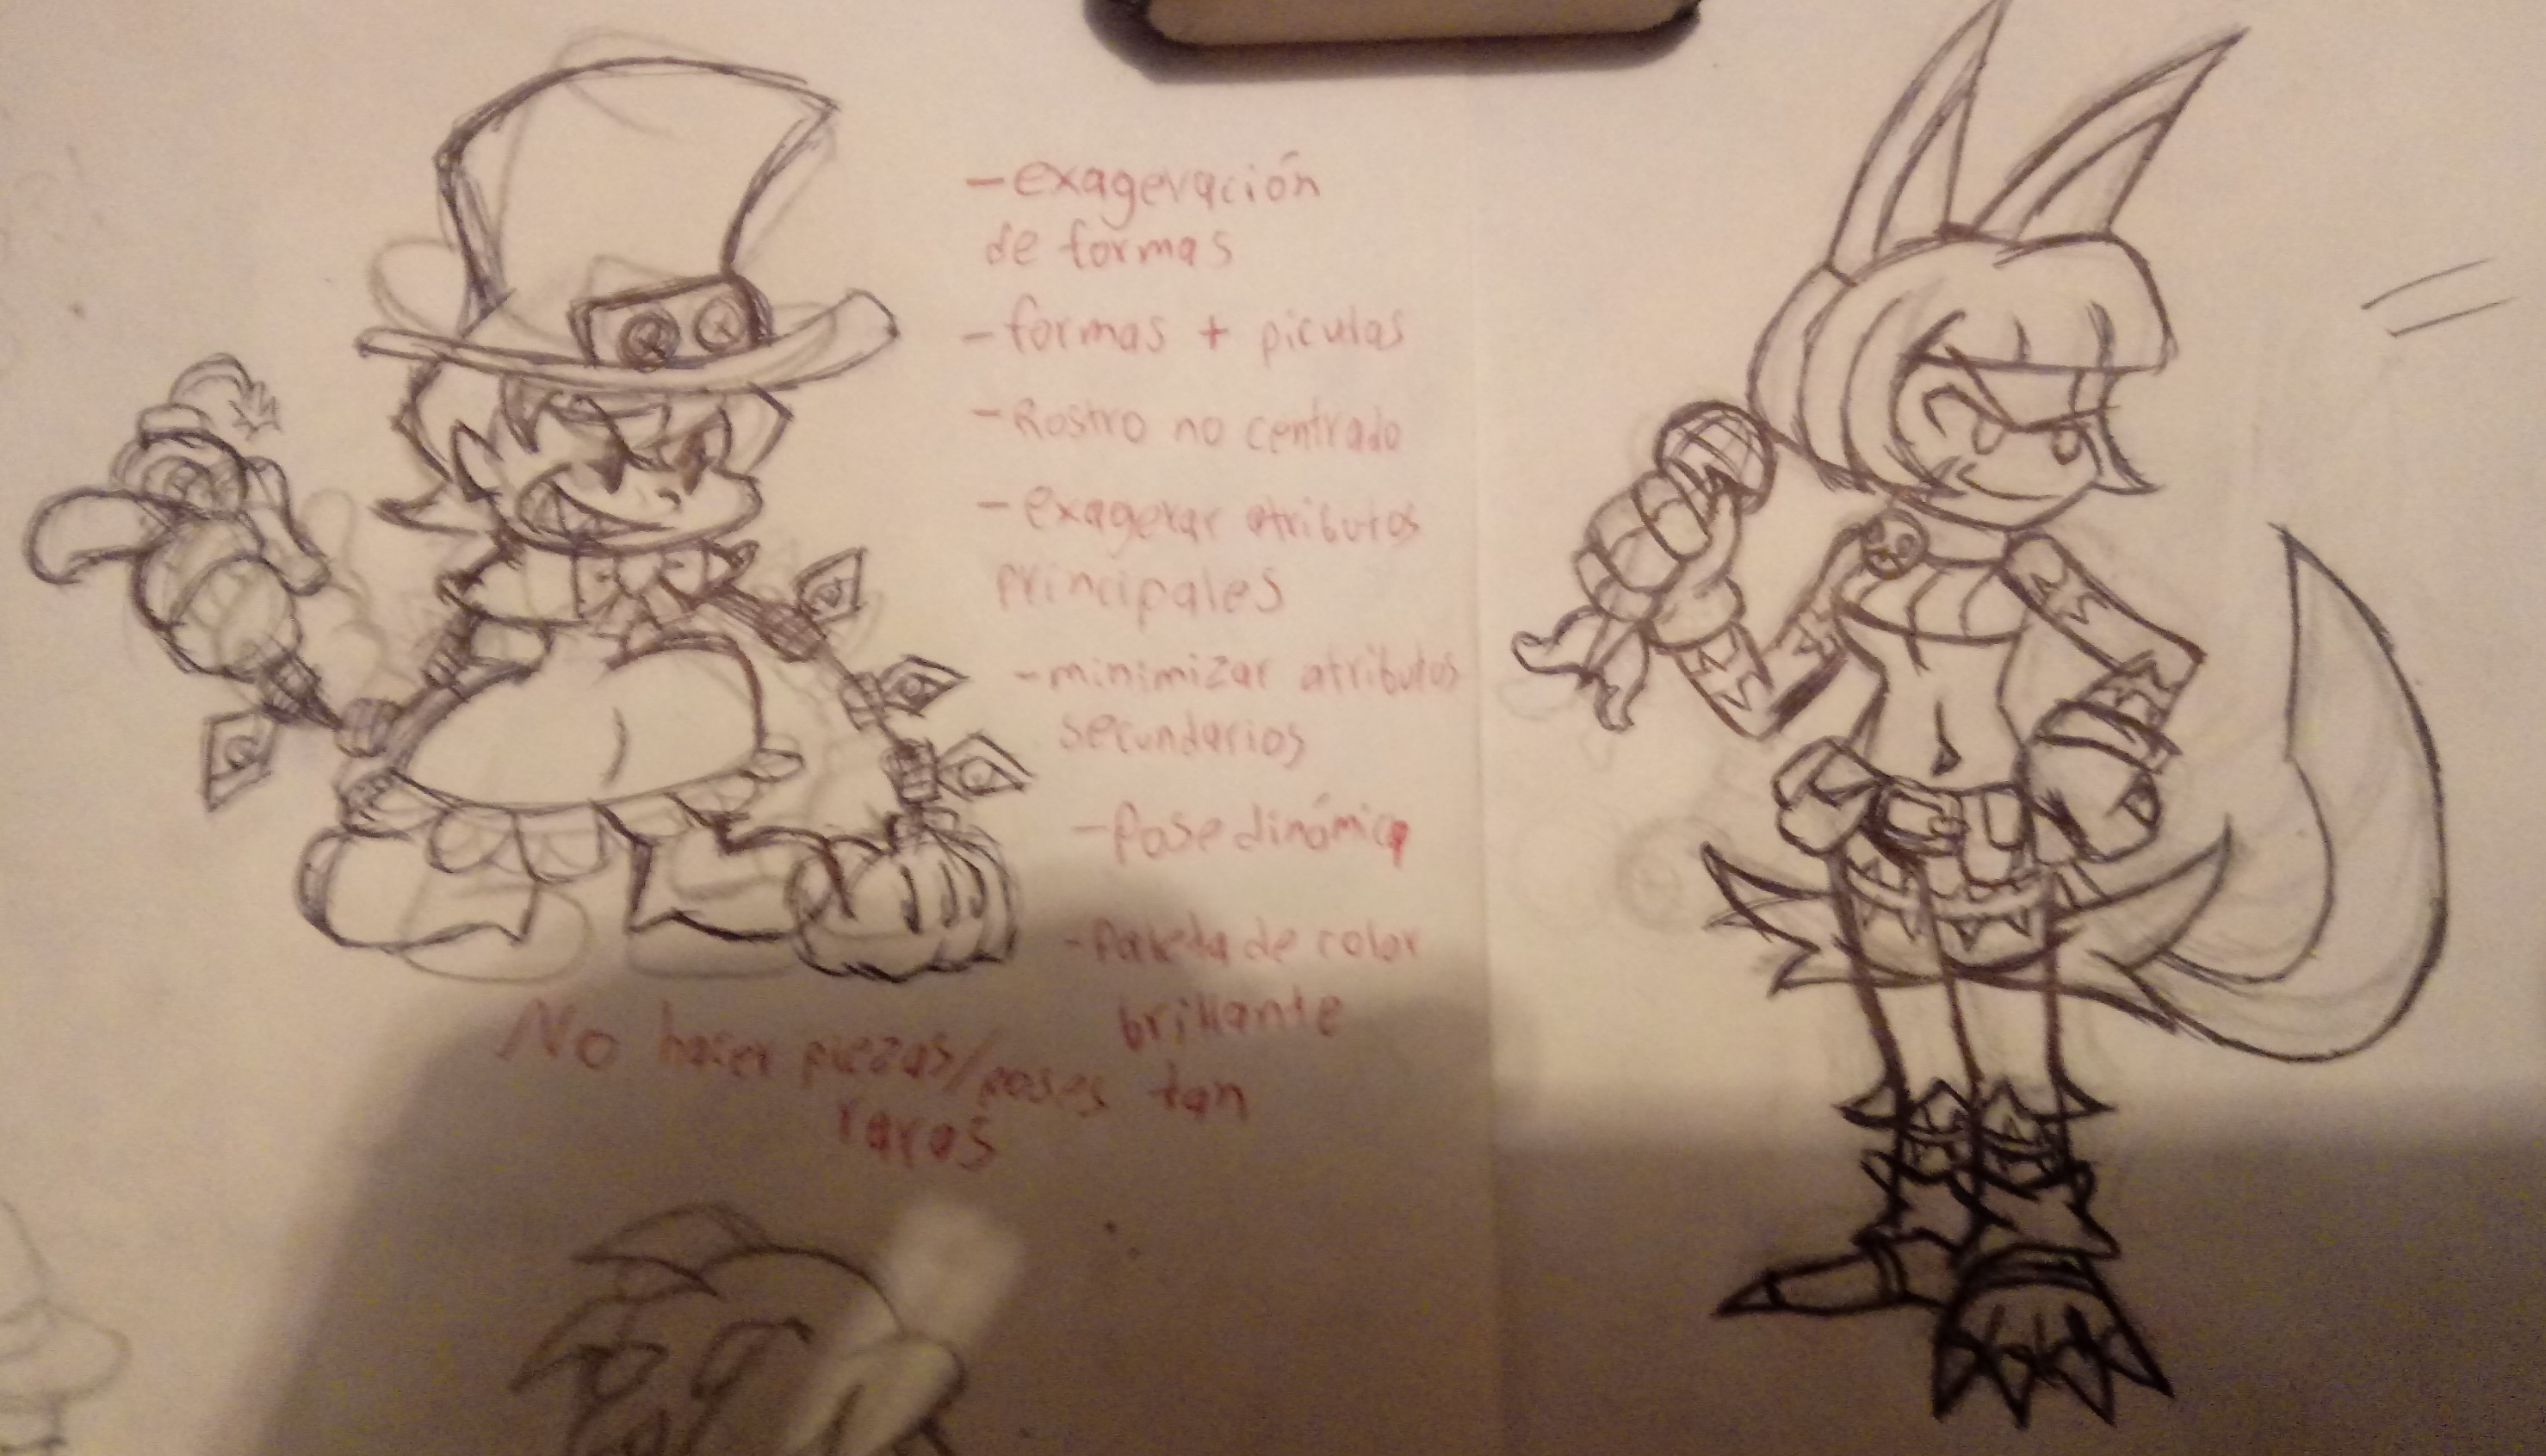 - exageración
de formas
- formas + piculas
- Rostro no centrado
- exagerar atributos
principales
- minimizar atributos
secundarios
- Pose dinámica
- Paleta de color
brillante
No hacer piezas/poses tan
raras